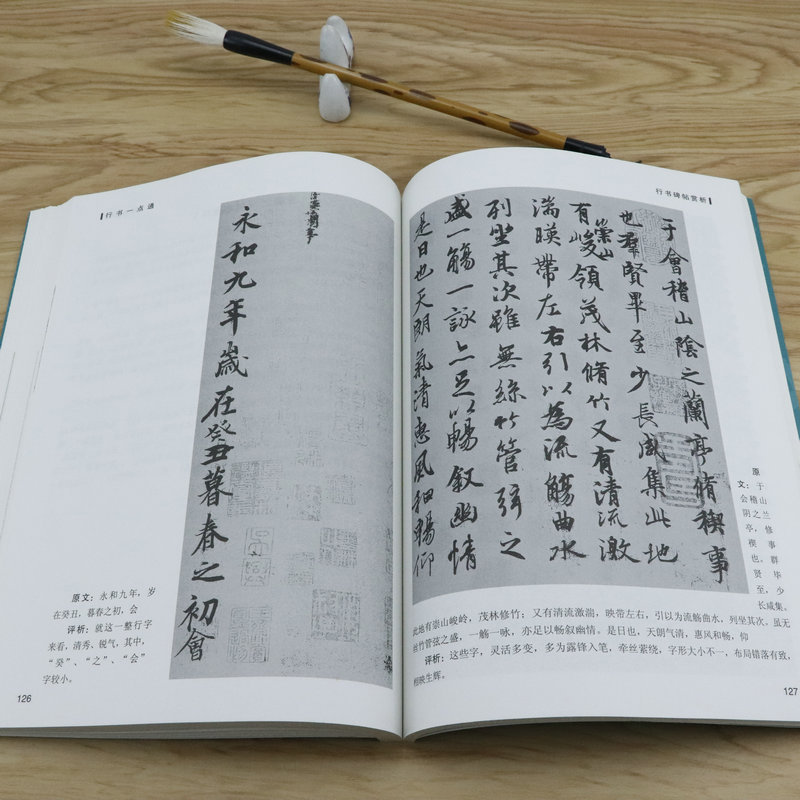 行书一点通
永和九年歲在癸丑暮春之初會
原文：永和九年，岁
在癸丑，暮春之初，会
评析：就这一整行字
来看，清秀、锐气，其中，
“癸”、“之”、“会”
字较小。
126
行书碑帖赏析
于會稽山陰之蘭亭脩禊事
也羣賢畢至少長咸集此地
有崇山峻領茂林脩竹又有清流激
湍暎帶左右引以為流觴曲水
列坐其次雖無絲竹管弦之
盛一觴一詠亦足以暢敘幽情
是日也天朗氣清惠風和暢仰
原
文：于
会稽山
阴之兰
亭，修
禊事
也。群
贤毕
至，少
长咸集。
此地有崇山峻岭，茂林修竹；又有清流激湍，映带左右，引以为流觞曲水，列坐其次。虽无
丝竹管弦之盛，一觞一咏，亦足以畅叙幽情。是日也，天朗气清，惠风和畅，仰
评析：这些字，灵活多变，多为露锋入笔，牵丝萦绕，字形大小不一，布局错落有致，
相映生辉。
127